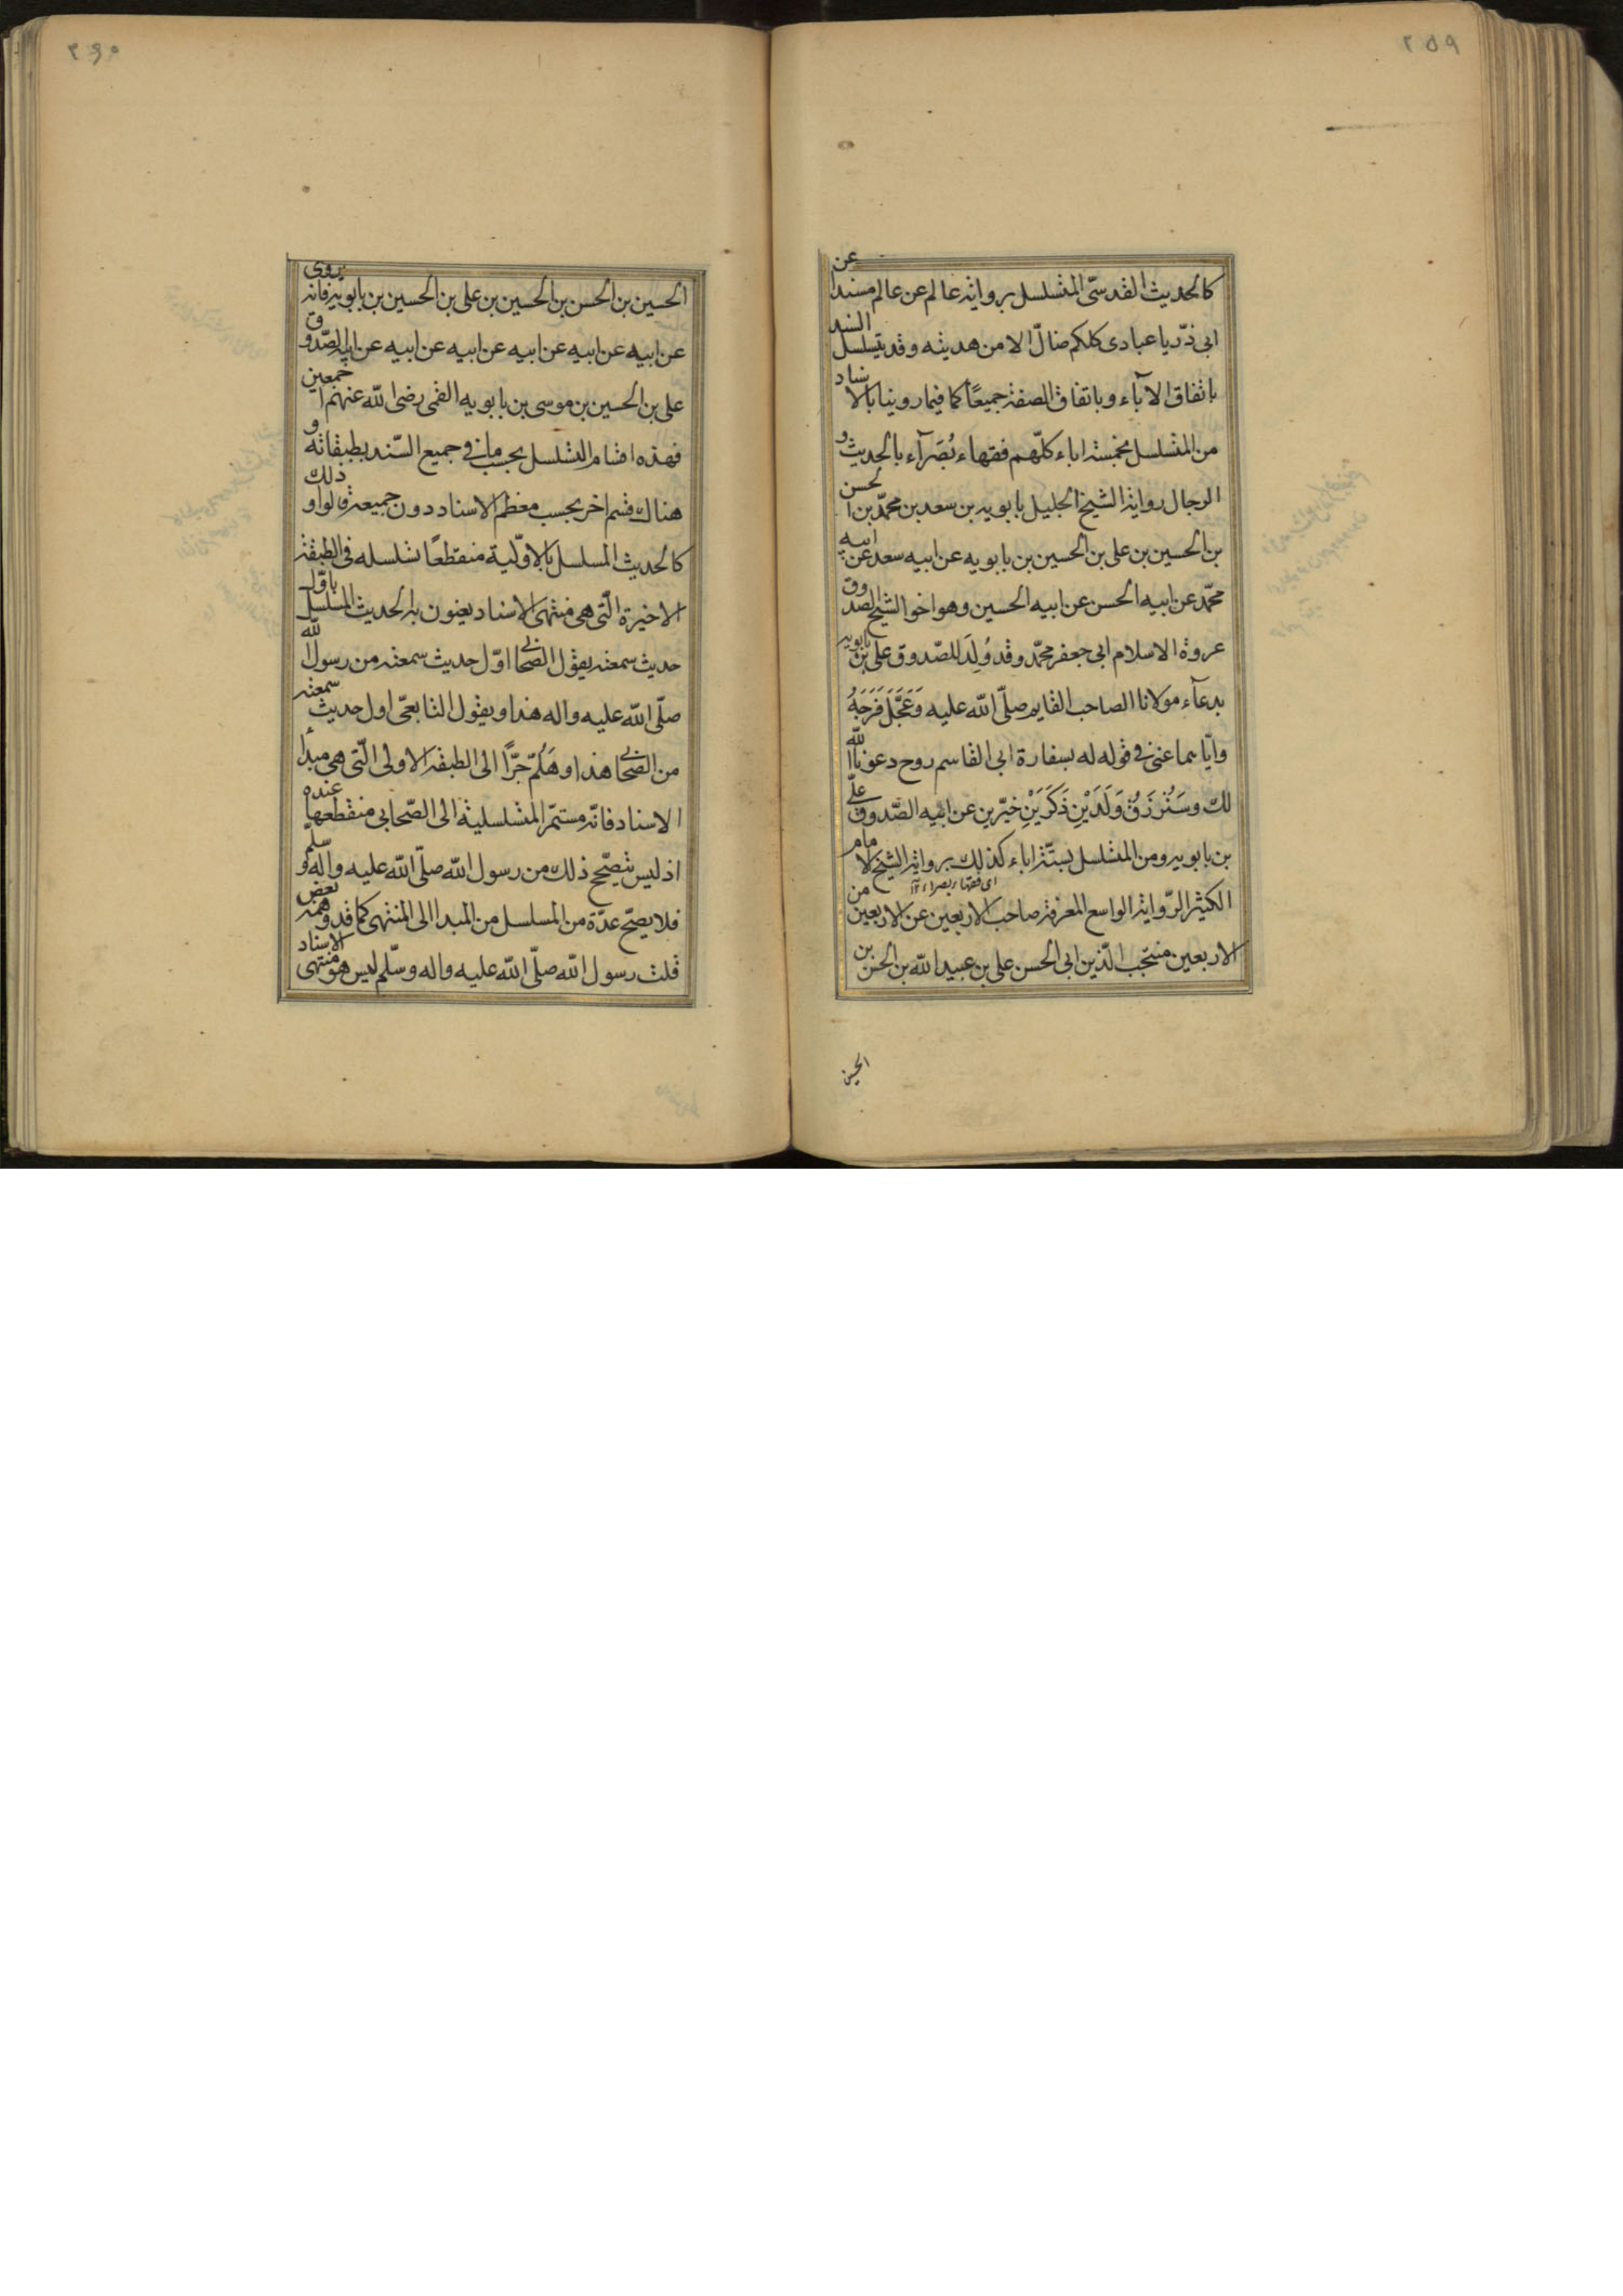 ٢٥٩
كالحديث القدسّى المتسلسل برواية عالم عن عالم مسندا عن
ابى ذرّ يا عبادى كلكم ضالّ الا من هديته وقد يتسلسل السند
باتفاق الآباء وباتفاق الصفة جميعًا كما فيما روينا بالاسناد
من المتسلسل بخمسة اباء كلّهم فقهاء بُصَرآء بالحديث و
الرجال رواية الشيخ الجليل بابويه بن سعد بن محمّد بن الحسن
بن الحسين بن على بن الحسين بن بابويه عن ابيه سعد عن ابيه
محمّد عن ابيه الحسن عن ابيه الحسين وهو اخوا الشيخ الصدوق
عروة الاسلام ابى جعفر محمّد وقد وُلِدَ للصّدوق على بن بابويه
بدعآء مولانا الصاحب القايم صلّى الله عليه وَعَجَّلَ فَرَجَهُ
وايّاهما عنى فى قوله له بسفارة ابى القاسم روح دعونا الله
لك وسَتُرْزَقُ وَلَدَيْنِ ذَكَرَيْنِ خيّرين عن ابيه الصّدوق علىّ
بن بابويه ومن المتسلسل بستّة اباء كذلك برواية الشيخ الامام
اى فقهاء بصراء
الكثير الرّواية الواسع المعرفة صاحب الاربعين عن الاربعين من
الاربعين منتجب الدّين ابى الحسن على بن عبيد الله بن الحسن بن
الحسين
٢٦٠
الحسين بن الحسن بن الحسين بن على بن الحسين بن بابويه فانه يروى
عن ابيه عن ابيه عن ابيه عن ابيه عن ابيه عن ابيه الصّدوق
على بن الحسين بن موسى بن بابويه القمى رضى الله عنهم اجمعين
فهذه اقسام التسلسل بحسب ما فى جميع السّند بطبقاته و
هناك قسم اخر بحسب معظم الاسناد دون جميعه قالوا و ذلك
كالحديث المسلسل بالاوّلية منقطعًا تسلسله فى الطبقة
الاخيرة الّتى هى منتهى الاسناد يعنون به الحديث المسلسل باوّل
حديث سمعته يقول الصّحابى اوّل حديث سمعته من رسول الله
صلّى الله عليه واله هذا ويقول التابعىّ اول حديث سمعته
من الصّحابى هذا وهَلُمّ جَرًّا الى الطبقة الاولى الّتى هى مبدأ
الاسناد فانّه مستمرّ المتسلسلية الى الصّحابى منقطعها عنده
اذ ليس يتصحّح ذلك من رسول الله صلّى الله عليه وآله و سلّم
فلا يصحّ عدّه من المسلسل من المبدا الى المنتهى كما قد وهمه بعض
قلت رسول الله صلّى الله عليه واله وسلّم ليس هو منتهى الاسناد